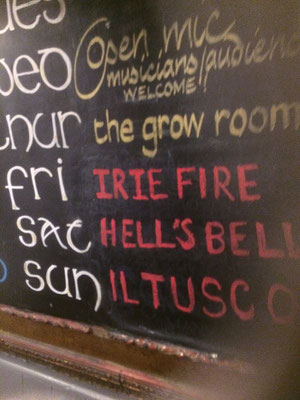 ues
wed Open Mic
musicians/audience
WELCOME
thur the grow room
fri IRIE FIRE
sat HELL'S BELL
sun IL TUSCO